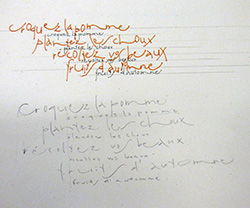 croquez la pomme
croquez la pomme
plantez les choux
plantez les choux
récoltez vos beaux
fruits d'automne
fruits d'automne
croquez la pomme
croquez la pomme
plantez les choux
plantez les choux
récoltez vos beaux
fruits d'automne
fruits d'automne